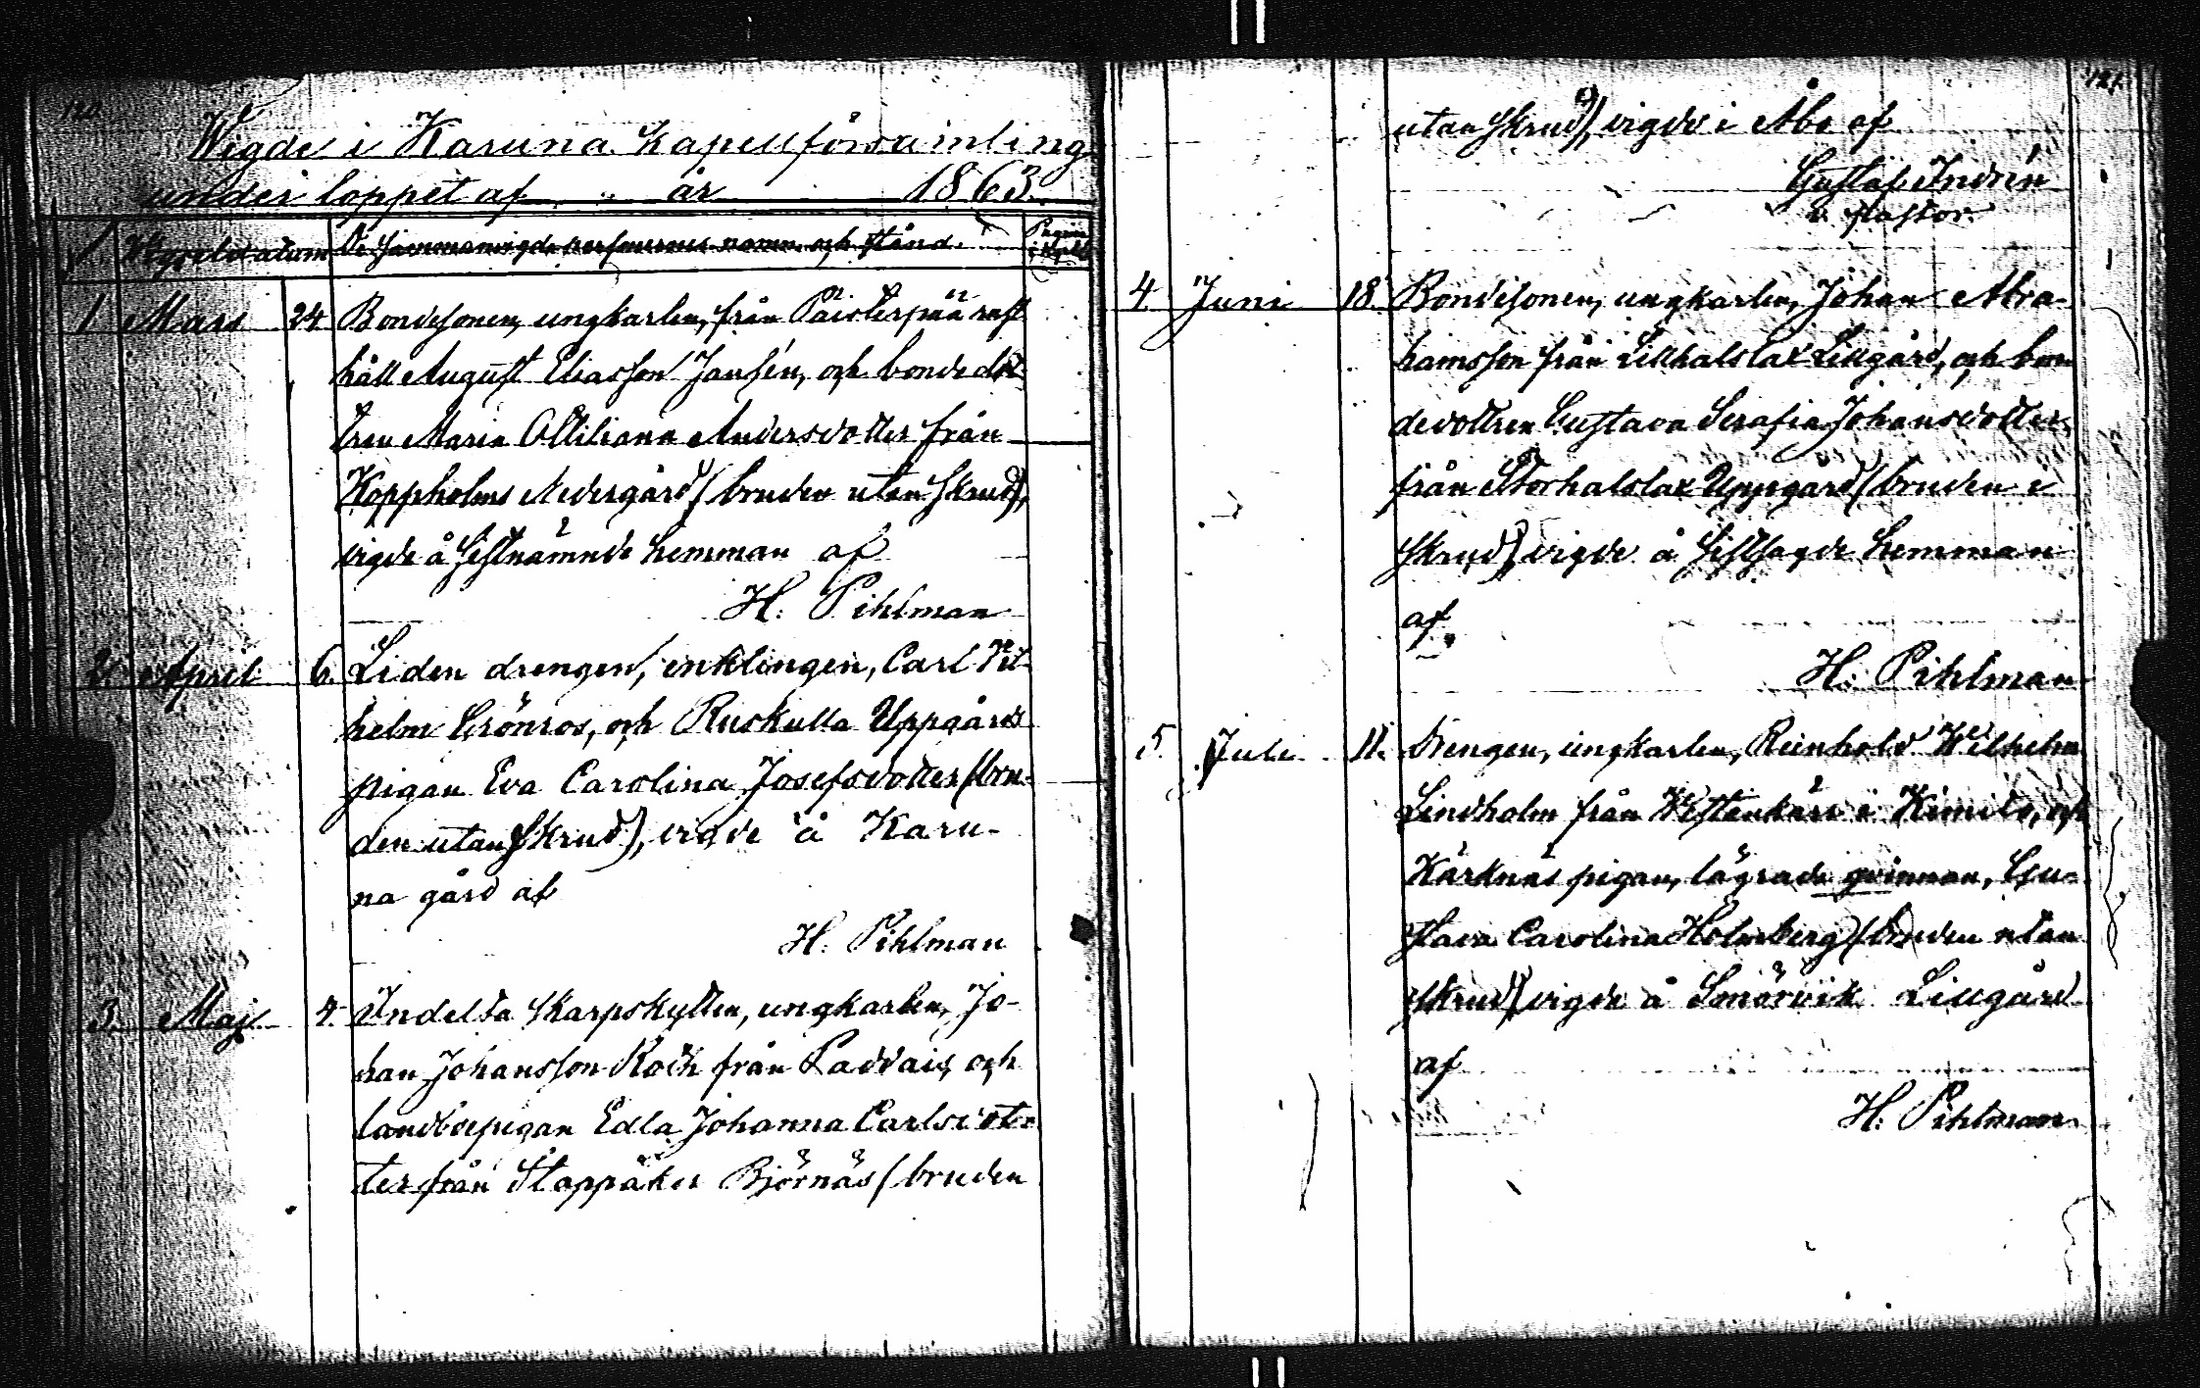 120.
Wigde i Karuna Kapellförsamling
under loppet af år 1863.
Wigseldatum De sammanvigda personernas namn och stånd. Pagina
1 Mars 24 Bondesonen, ungkarlen, från Päisterpää rust
håll August Eliasson Jansén, och bondedot-
tren Maria Ottiliana Andersdotter från
Koppholms Nedergård (bruden utan skrud),
vigde å sistnämnde hemman af
H. Pihlman
2. April 6. Liden drengen, enklingen, Carl Vil-
helm Grönros, och Ruskulla Uppgårds
pigan Eva Carolina Josefsdotter (bru-
den utan skrud), vigde å Karu-
na gård af
H. Pihlman
3. Maj 4. Indelta skarpskytten, ungkarlen, Jo-
han Johansson Koch från Paddais, och
landbopigan Edla Johanna Carlsdot-
ter från Stappåker Björnäs (bruden
121.
utan skrud), vigde i Åbo af
Gustaf Indrén
v. Pastor.
4. Juni 18. Bondesonen, ungkarlen, Johan Abra-
hamsson från Lillhalslax Lillgård, och bon
dedottren Gustava Serafia Johansdotter
från Storhalslax Uppgård (bruden i
skrud) vigde å sistsagde hemman
af
H. Pihlman
5. Juli 11. Drengen, ungkarlen, Reinhold Wilhelm
Lindholm från Westankärr i Kimito, och
Kärknäs pigan, lägrade qvinnan, Gu-
stava Carolina Holmberg (bruden utan
skrud) vigde å Smörvik Lillgård
af
H. Pihlman